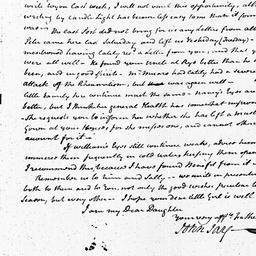 while Wyon last week, I will not omit this opportunity, altho
writing by Candle light has become less easy to me than it form
was —
The last Post did not bring for us any letters from all
Peter came here last Saturday, and left us Yesterday (Sunday). —
mentioned having lately had a letter from you, and that y
were all well — He found your small at Rye better than he
been, and in good spirits. — Mr Munro had lately had a severe
attack of the Rheumatism, but was again
little family here continue much the same — Nancy's Eyes are
better, but I think her general Health has somewhat improv
She requests you to inform her whether she has left a musl
Gown at your House for she misses one, and cannot other
account for it —
If William's Eyes still continue weak, advise him
immerse them frequently in cold water keeping them open
I recommend this, because I have found Benefit from it —
Remember us to him and Sally — we unite in presenting
both to them and to You, not only the good wishes peculiar to
Season, but every other — I hope your dear little girl is well
I am my Dear Daughter
Your very affte Father
John Jay —